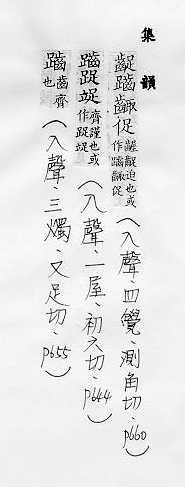 集韻
齱𪘏齺促 齱齪迫也或作𪘏齺促（入聲、四覺、測角切、p660）
𪘏踀娖 齊謹也或作踀娖（入聲、一屋、初六切、p644）
𪘏 齒齊也（入聲、三燭、又足切、p655）